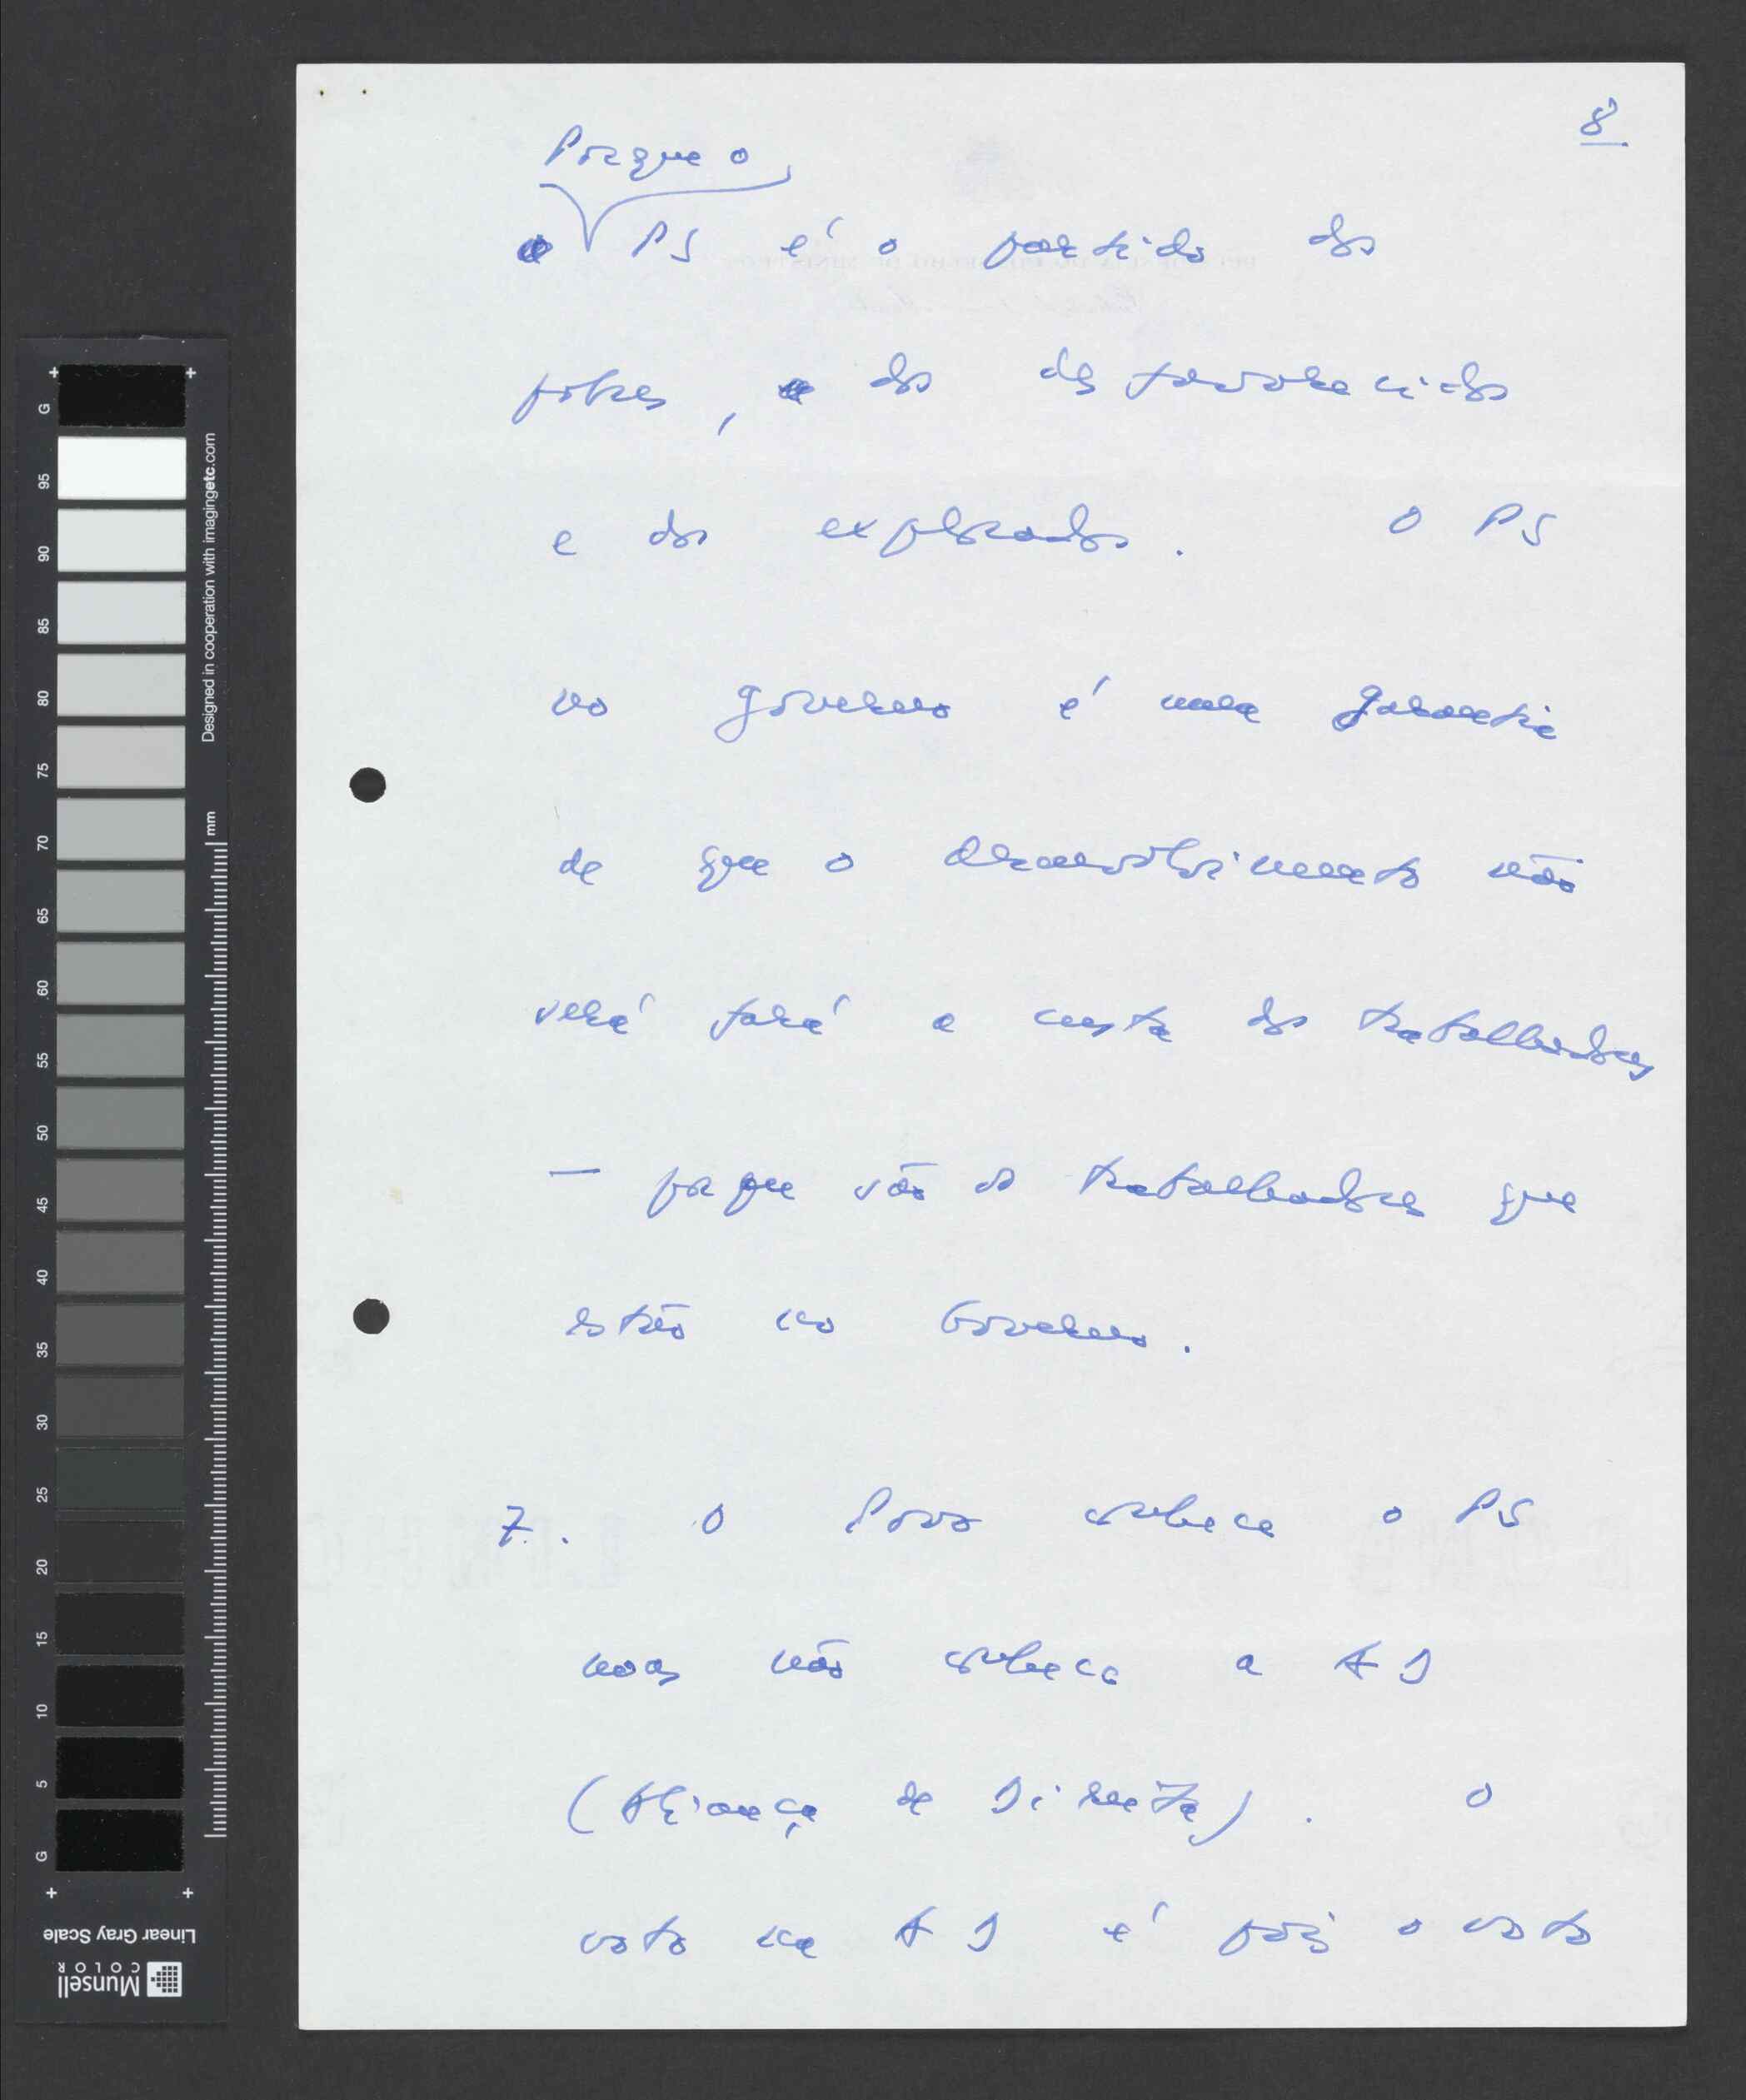 8
Porque o
PS é o partido dos
pobres, dos desfavorecidos
e dos explorados. O PS
no governo é uma garantia
de que o desenvolvimento não
será feito à custa dos trabalhadores
— porque são os trabalhadores que
estão no Governo.
7. O Povo conhece o PS
mas não conhece a AD
(Aliança de Direita). O
voto na AD é pois o voto
G
95
90
85
80
75
70
65
60
55
50
45
40
35
30
25
20
15
10
5
G
Designed in cooperation with imagingetc.com
mm
Linear Gray Scale
Munsell
COLOR